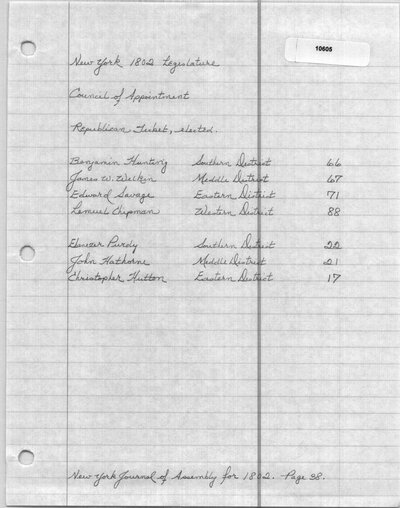 10605
New York 1802 Legislature
Council of Appointment
Republican Ticket, elected.
Benjamin Hunting Southern District 66
James W. Wilkin Middle District 67
Edward Savage Eastern District 71
Lemuel Chipman Western District 88
Ebenezer Purdy Southern District 22
John Hathorne Middle District 21
Christopher Hutton Eastern District 17
New York Journal of Assembly for 1802. Page 38.